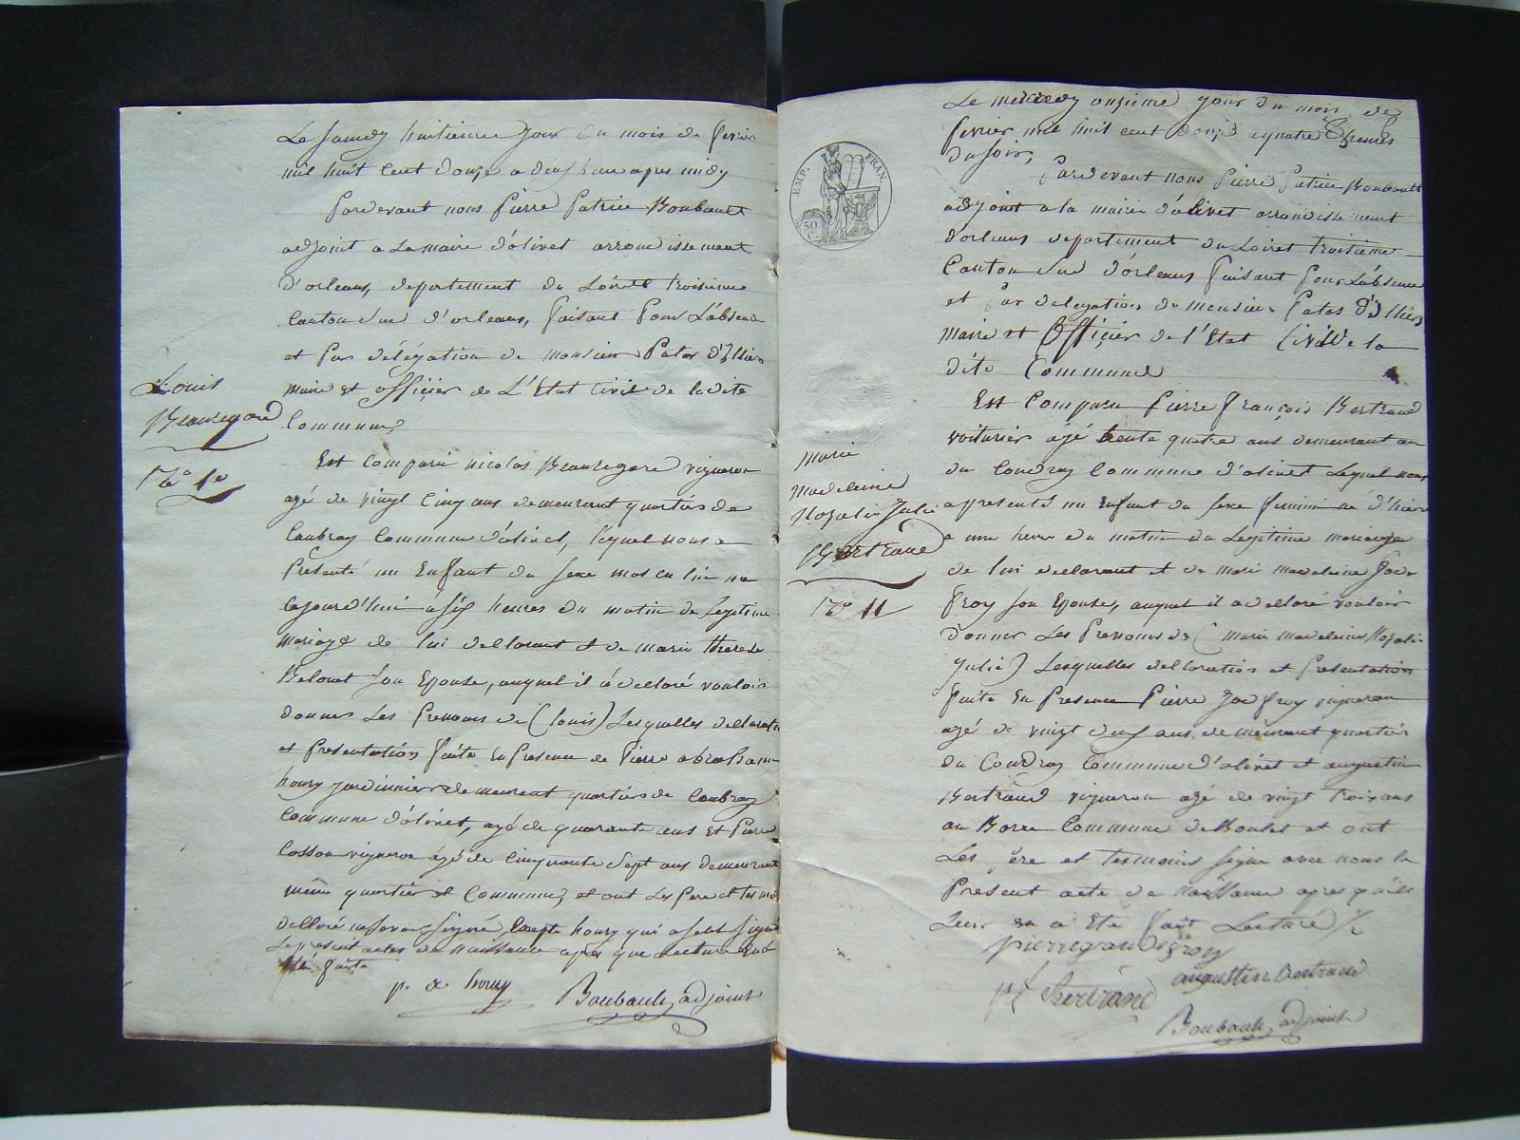 Le samedy huitieme Jour du mois de fevrier
mil huit cent douze a deux heure apres midy
Pardevant nous Pierre Patrice Boubault
adjoint a La maire d'olivet arrondissement
d'orleans, departement du Loiret troisieme
Canton Sud d'orleans, faisant Pour L'absence
et Par délégation de monsieur Patas d'Illiers
maire et officier de L'Etat Civil de la dite
Commune,
Louis
Beauregard
N° 10
Est Comparu nicolas Beauregard vigneron
agé de vingt Cinq ans demeurant quartier de
Caubray Commune d'olivet, lequel nous a
Presenté un Enfant du Sexe masculin né
cejourd'hui a six heures du matin du Legitime
mariage de lui declarant et de marie therese
Belouet son Epouse, auquel il a declaré vouloir
donner Les Prenoms de (Louis) Lesquelles declaration
et Presentation faite En Presence de Pierre abraham
houry jardinier demeurant quartier de Caubray
Commune d'olivet, agé de quarante ans et Pierre
Cosson vigneron agé de Cinquante Sept ans demeurant
même quartier et Commune, et ont Les Pere et temoins
declaré ne savoir signé, Excepté houry qui a seul signé
Le present actes de naissance apres que lecture a
été faite
p. a houry Boubault, adjoint
EMP. FRAN.
50
Le mercredy onzieme jour du mois de
fevrier mil huit cent douze a quatre heures
du soir,
Pardevant nous Pierre Patrice Boubault
adjoint a la mairie d'olivet arrondissement
d'orleans departement du Loiret troisieme
Canton Sud d'orleans faisant Pour L'absence
et Par delegation de monsieur Patas d'Illiers
maire et Officier de l'Etat Civil de la
dite Commune
marie
madeleine
Rosalie Julie
Bertrand
N° 11
Est Comparu Pierre françois Bertrand
voiturier agé trente quatre ans demeurant au
du Coudray Commune d'olivet Lequel nous
a presenté un Enfant du sexe feminin né d'hier
a une heure du matin du Legitime mariage
de lui declarant et de marie madeleine Jode
froy son Epouse, auquel il a declaré vouloir
donner Les Prenoms de (marie madeleine Rosalie
Julie) Lesquelles declaration et Presentation
faite En Presence Pierre Jodefroy vigneron
agé de vingt deux ans, demeurant quartier
du Coudray Commune d'olivet et augustin
Bertrand vigneron agé de vingt trois ans
au Commune de et ont
Les Père et temoins signé avec nous le
Présent acte de Naissance apres qu'il
Leur en a Eté fait Lecture
pierre gaudefroy
augustin Bertrand
p f Bertrand
Boubault, adjoint